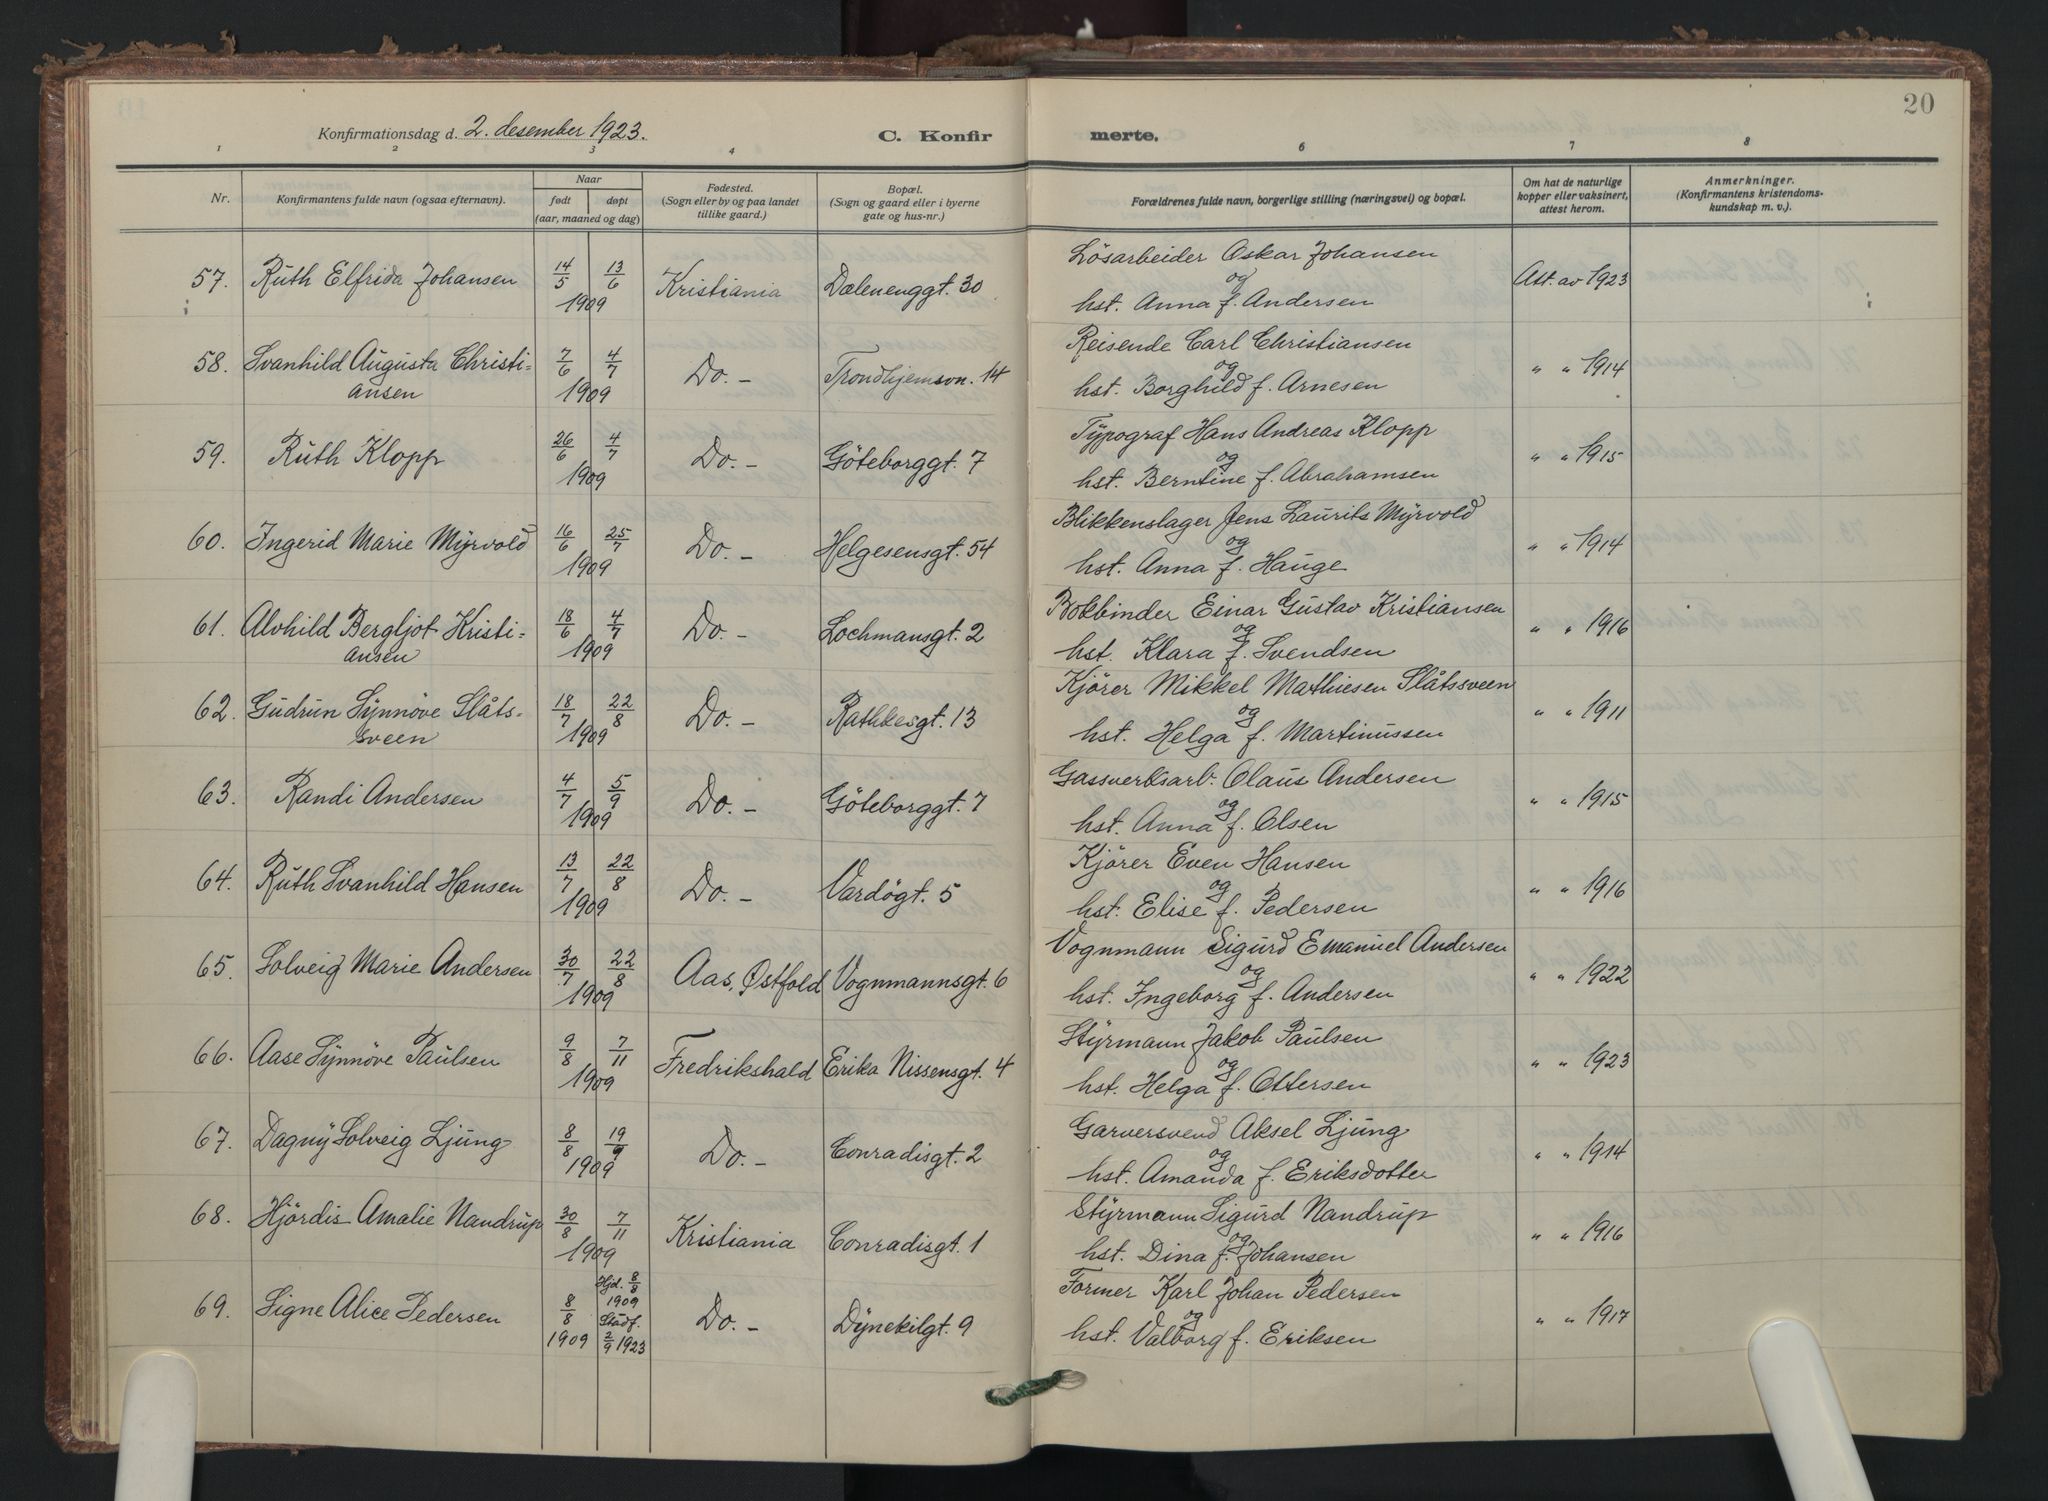 20
Konfirmationsdag d. 2. desember 1923. C. Konfir merte.
1 2 3 4 6 7 8
Nr. Konfirmantens fulde navn (ogsaa efternavn). Naar født døpt (aar, maaned og dag) Fødested. (Sogn eller by og paa landet tillike gaard.) Bopæl. (Sogn og gaard eller i byerne gate og hus-nr.) Forældrenes fulde navn, borgerlige stilling (næringsvei) og bopæl. Om hat de naturlige kopper eller vaksinert, attest herom. Anmerkninger. (Konfirmantens kristendoms-kundskap m. v.).
Lösarbeider Oskar Johansen
57. Ruth Elfrida Johansen 14/5 13/6 1909 Kristiania Dælenenggt. 30 og Att. av 1923
hst. Anna f. Andersen
Reisende Carl Christiansen
58. Svanhild Augusta Christi- 7/6 4/7 1909 Do. - Trondhjemsvn. 14 og " " 1914
ansen hst. Borghild f. Arnesen
Typograf Hans Andreas Klopp
59. Ruth Klopp 26/6 4/7 1909 Do. - Göteborggt. 7 og " " 1915
hst. Berntine f. Abrahamsen
Blikkenslager Jens Laurits Myrvold
60. Ingerid Marie Myrvold 16/6 25/7 1909 Do. - Helgesensgt. 54 og " " 1914
hst. Anna f. Hauge
Bokbinder Einar Gustav Kristiansen
61. Alvhild Bergljot Kristi- 18/6 4/7 1909 Do. - Lochmansgt. 2 og " " 1916
ansen hst. Klara f. Svendsen
Kjörer Mikkel Mathiesen Slåtssveen
62. Gudrun Synnöve Slåts- 18/7 22/8 1909 Do. - Rathkesgt. 13 og " " 1911
sveen hst. Helga f. Martinussen
Gassverksarb. Olaus Andersen
63. Randi Andersen 4/7 5/9 1909 Do. - Göteborggt. 7 og " " 1915
hst. Anna f. Olsen
Kjörer Even Hansen
64. Ruth Svanhild Hansen 13/7 22/8 1909 Do. - Vardögt. 5 og " " 1916
hst. Elise f. Pedersen
Vognmann Sigurd Emanuel Andersen
65. Solveig Marie Andersen 30/7 22/8 1909 Aas, Østfold Vognmannsgt. 6 og " " 1922
hst. Ingeborg f. Andersen
Styrmann Jakob Paulsen
66. Aase Synnöve Paulsen 9/8 7/11 1909 Fredrikshald Erika Nissensgt. 4 og " " 1923
hst. Helga f. Ottersen
Garversvend Aksel Ljung
67. Dagny Solveig Ljung 8/8 19/9 1909 Do. - Conradisgt. 2 og " " 1914
hst. Amanda f. Eriksdotter
Styrmann Sigurd Nandrup
68. Hjördis Amalie Nandrup 30/8 7/11 1909 Kristiania Conradisgt. 1 og " " 1916
hst. Dina f. Johansen
Former Karl Johan Pedersen
69. Signe Alice Pedersen 8/8 1909 Hjd. 8/8 1909 Stadf. 2/9 1923 Do. - Dynekilgt. 9 og " " 1917
hst. Valborg f. Eriksen